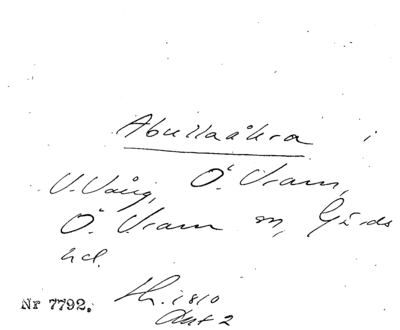 Abullaåkra i
V. Vång, Ö. Vram,
Ö. Vram sn, Gärds
hd.
Nr 7792. th. 1810
Akt 2